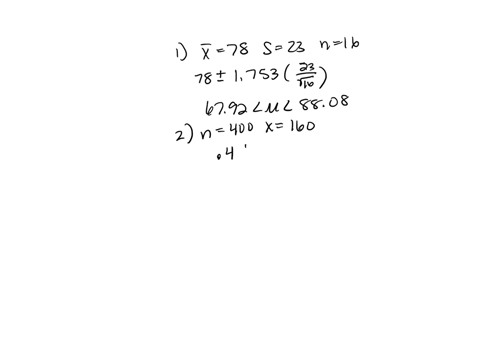 1) x̄ = 78 S = 23 n = 16
78 ± 1.753 ( 23/√16 )
67.92 < μ < 88.08
2) n = 400 x = 160
.4